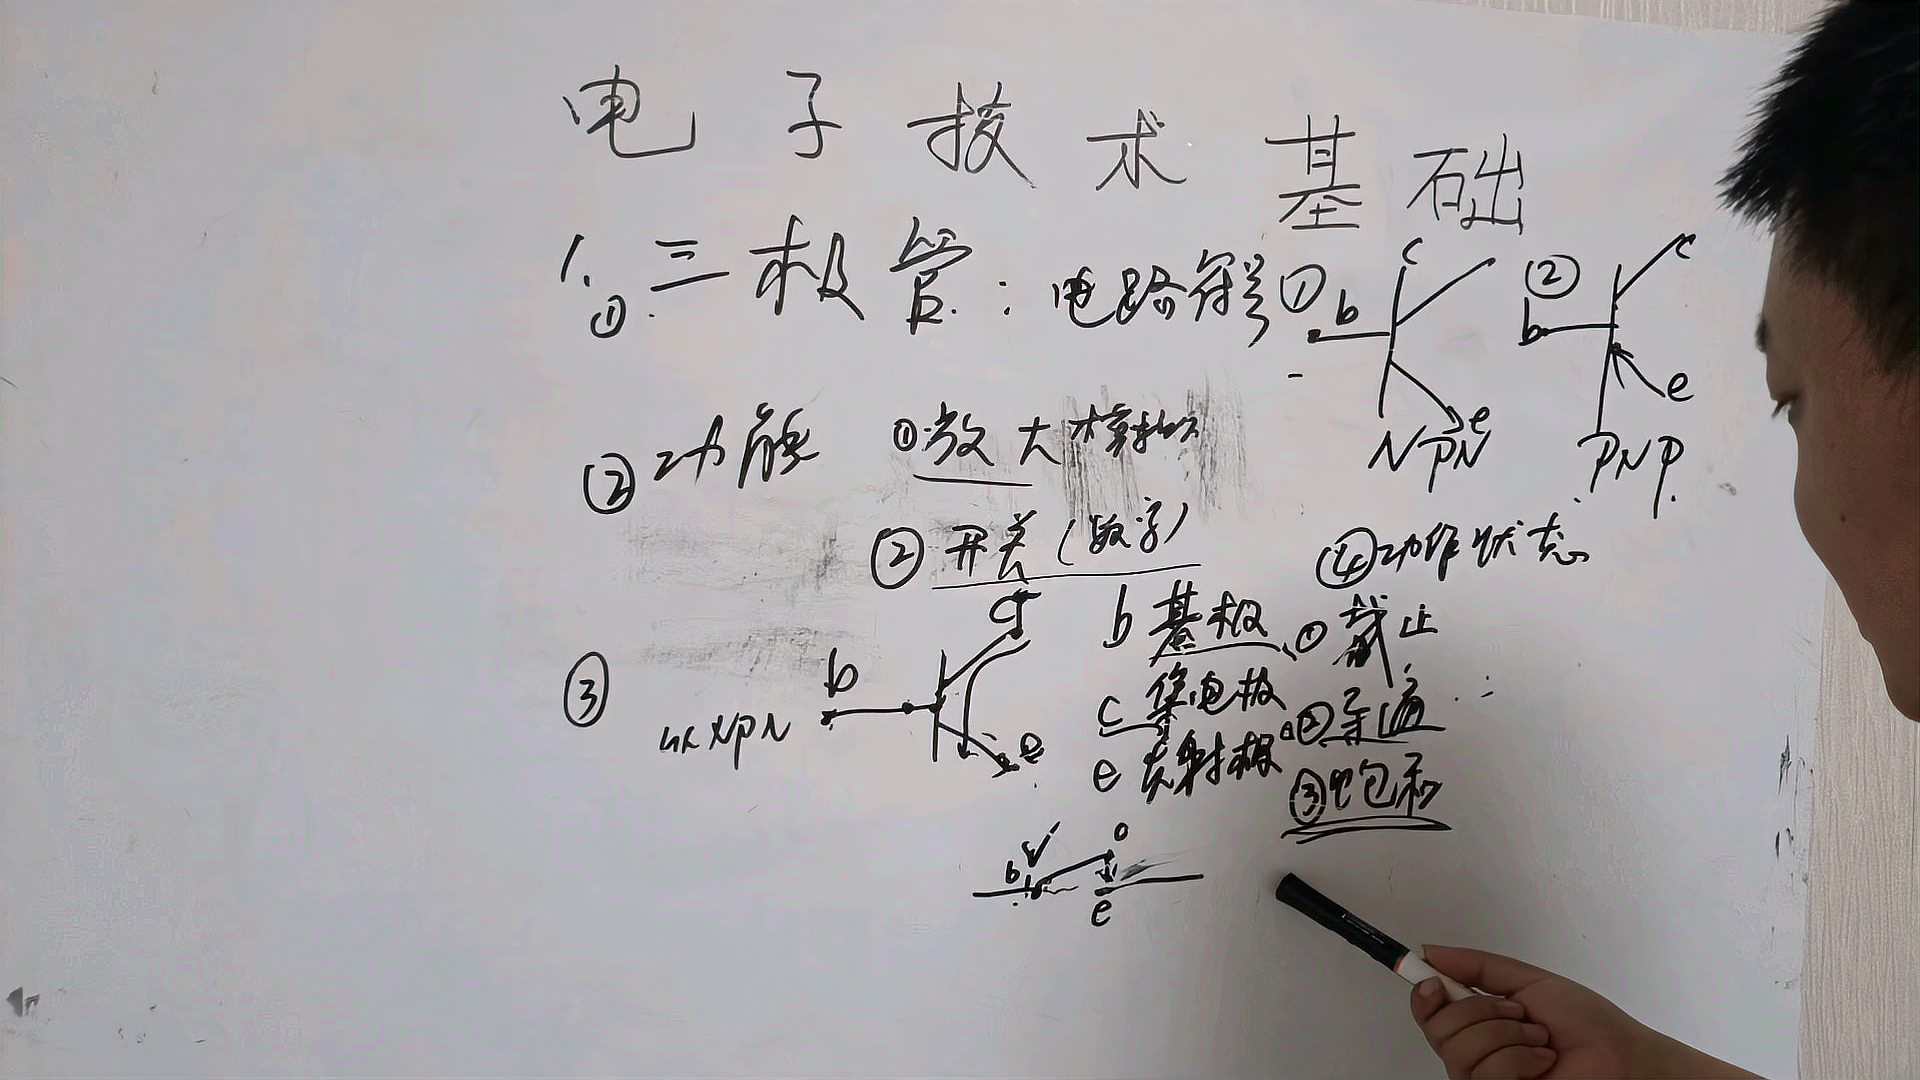 电子技术基础
1. 三极管：电路符号 ① b c e NPN ② b c e PNP
①
② 功能 ① 放大 模拟
② 开关（数字）
③ 以NPN b c e
b 基极
c 集电极
e 发射极
④ 工作状态
① 截止
② 导通
③ 饱和
b e